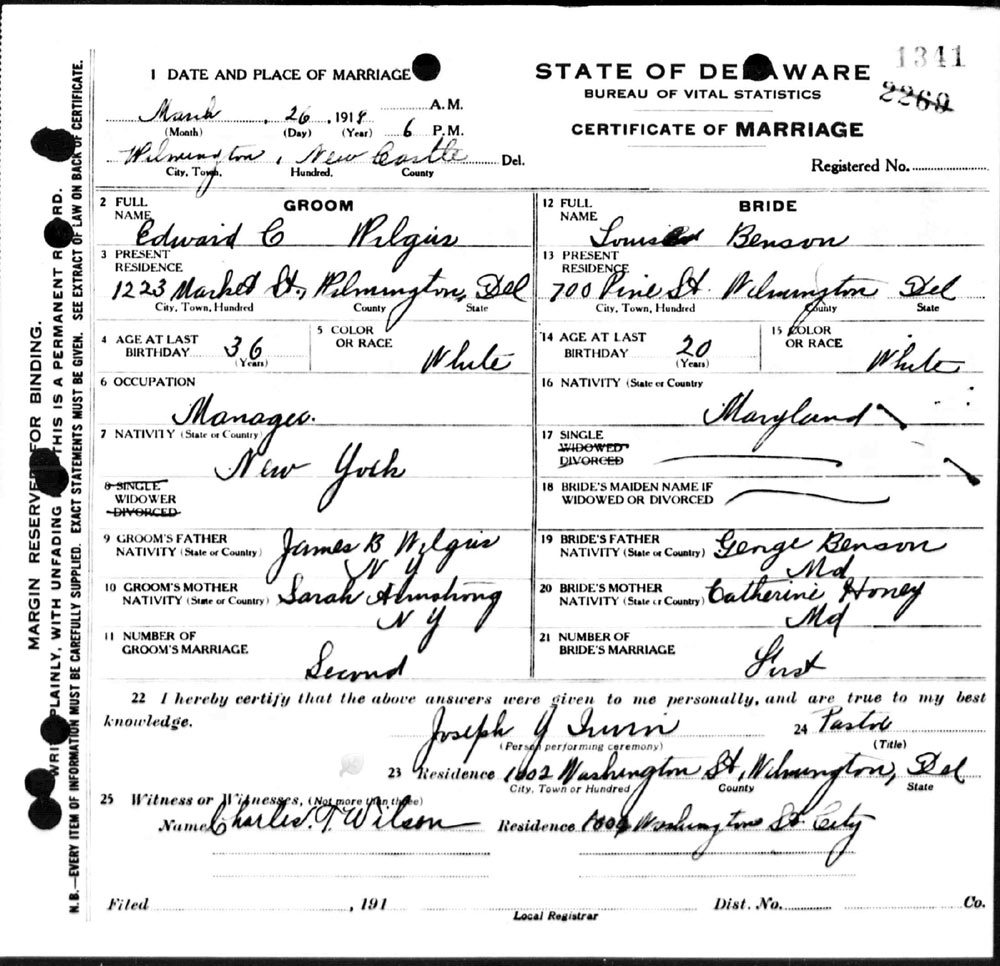 1341
2260
1 DATE AND PLACE OF MARRIAGE
STATE OF DELAWARE
BUREAU OF VITAL STATISTICS
CERTIFICATE OF MARRIAGE
Registered No.
March, 26, 1918 A.M.
(Month) (Day) (Year) 6 P.M.
Wilmington, New Castle Del.
City, Town, Hundred, County
2 FULL NAME GROOM
Edward C Wilgus
3 PRESENT RESIDENCE
1223 Market St., Wilmington, Del
City, Town, Hundred County State
4 AGE AT LAST BIRTHDAY 36
(Years)
5 COLOR OR RACE
White
6 OCCUPATION
Manager.
7 NATIVITY (State or Country)
New York
8 SINGLE
WIDOWER
DIVORCED
9 GROOM'S FATHER James B Wilgus
NATIVITY (State or Country) N Y
10 GROOM'S MOTHER Sarah Armstrong
NATIVITY (State or Country) N Y
11 NUMBER OF GROOM'S MARRIAGE
Second
12 FULL NAME BRIDE
Benson
13 PRESENT RESIDENCE
700 Pine St. Wilmington Del
City, Town, Hundred County State
14 AGE AT LAST BIRTHDAY 20
(Years)
15 COLOR OR RACE
White
16 NATIVITY (State or Country
Maryland
17 SINGLE
WIDOWED
DIVORCED
18 BRIDE'S MAIDEN NAME IF
WIDOWED OR DIVORCED
19 BRIDE'S FATHER George Benson
NATIVITY (State or Country) Md
20 BRIDE'S MOTHER Catherine Honey
NATIVITY (State or Country) Md
21 NUMBER OF BRIDE'S MARRIAGE
First
22 I hereby certify that the above answers were given to me personally, and are true to my best
knowledge.
Joseph Y Irwin 24 Pastor
(Person performing ceremony) (Title)
23 Residence 1002 Washington St, Wilmington, Del
City, Town or Hundred County State
25 Witness or Witnesses, (Not more than three)
Name Charles. T. Wilson Residence Washington St City
Filed , 191 Dist. No. Co.
Local Registrar
MARGIN RESERVED FOR BINDING.
WRITE PLAINLY, WITH UNFADING THIS IS A PERMANENT RECORD.
N.B.—EVERY ITEM OF INFORMATION MUST BE CAREFULLY SUPPLIED. EXACT STATEMENTS MUST BE GIVEN. SEE EXTRACT OF LAW ON BACK OF CERTIFICATE.